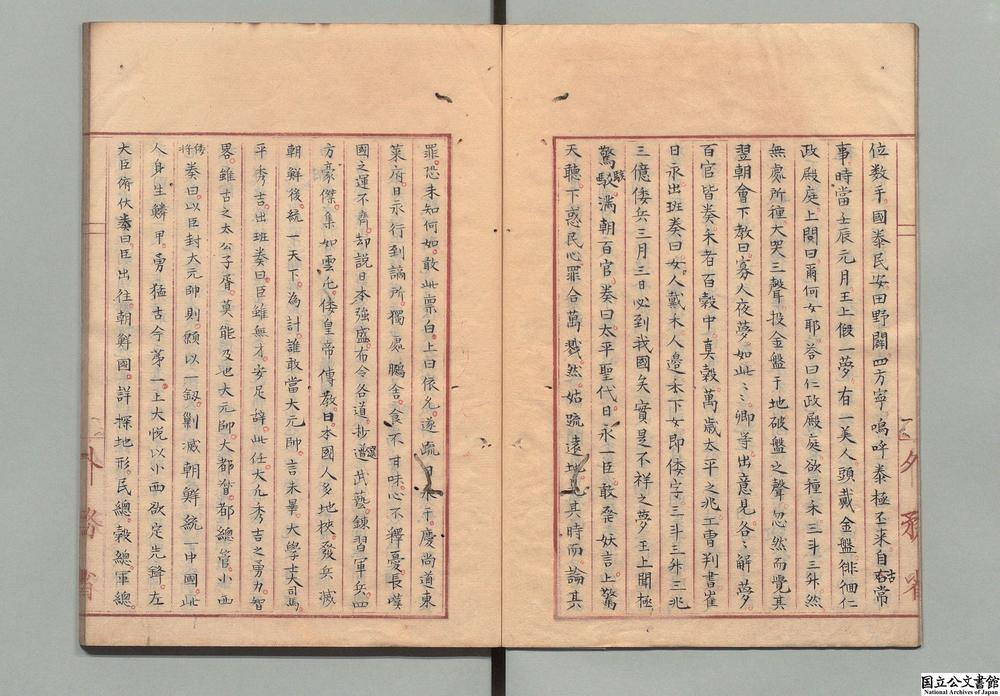 位数乎。國泰民安田野闢四方寧嗚呼泰極丕来自古常
事時當壬辰元月王上假一夢有一美人頭戴金盤徘徊仁
政殿庭上問曰爾何女耶。荅曰仁政殿庭欲種禾三斗三升然
無處所種大哭三聲投金盤于地破盤之聲忽然而覺其
翌朝會下教曰寡人夜夢如此〻卿等出意見各〻解夢
百官皆奏禾者百穀中真穀萬歳太平之兆工曹判書崔
日永出班奏曰女人戴木人邊禾下女即倭字三斗三升三兆
三億倭兵三月三日必到我國矣實是不祥之夢王上聞極
驚駭満朝百官奏曰太平聖代日永一臣敢發妖言上驚
天聽下惑民心罪合萬戮然姑疏遠地其時而論其
罪恐未知何如敢此禀白上曰依允遂疏日永于慶尚道東
萊府日永行到謫所獨處鵬舎食不甘味心不釋憂長嘆
國之運不齊却説日本強盛布令各道抄選武藝鍊習軍兵四
方豪傑集如雲屯倭皇帝傳教曰日本國人多地狭發兵滅
朝鮮後統一天下為計誰敢當大元帥言未畢大學士大司馬
平秀吉出班奏曰臣雖無才安足辞此任大凡秀吉之勇力智
畧雖古之太公子胥莫能及也大元帥大都督都總管小西
倚將奏曰以臣封大元帥則願以一釼剿滅朝鮮統一中國此
人身生鱗甲勇猛古今第一上大悦以小西欲定先鋒左
大臣俯伏奏曰臣出往朝鮮國詳探地形民總穀總軍總
外務省
外務省
国立公文書館
National Archives of Japan